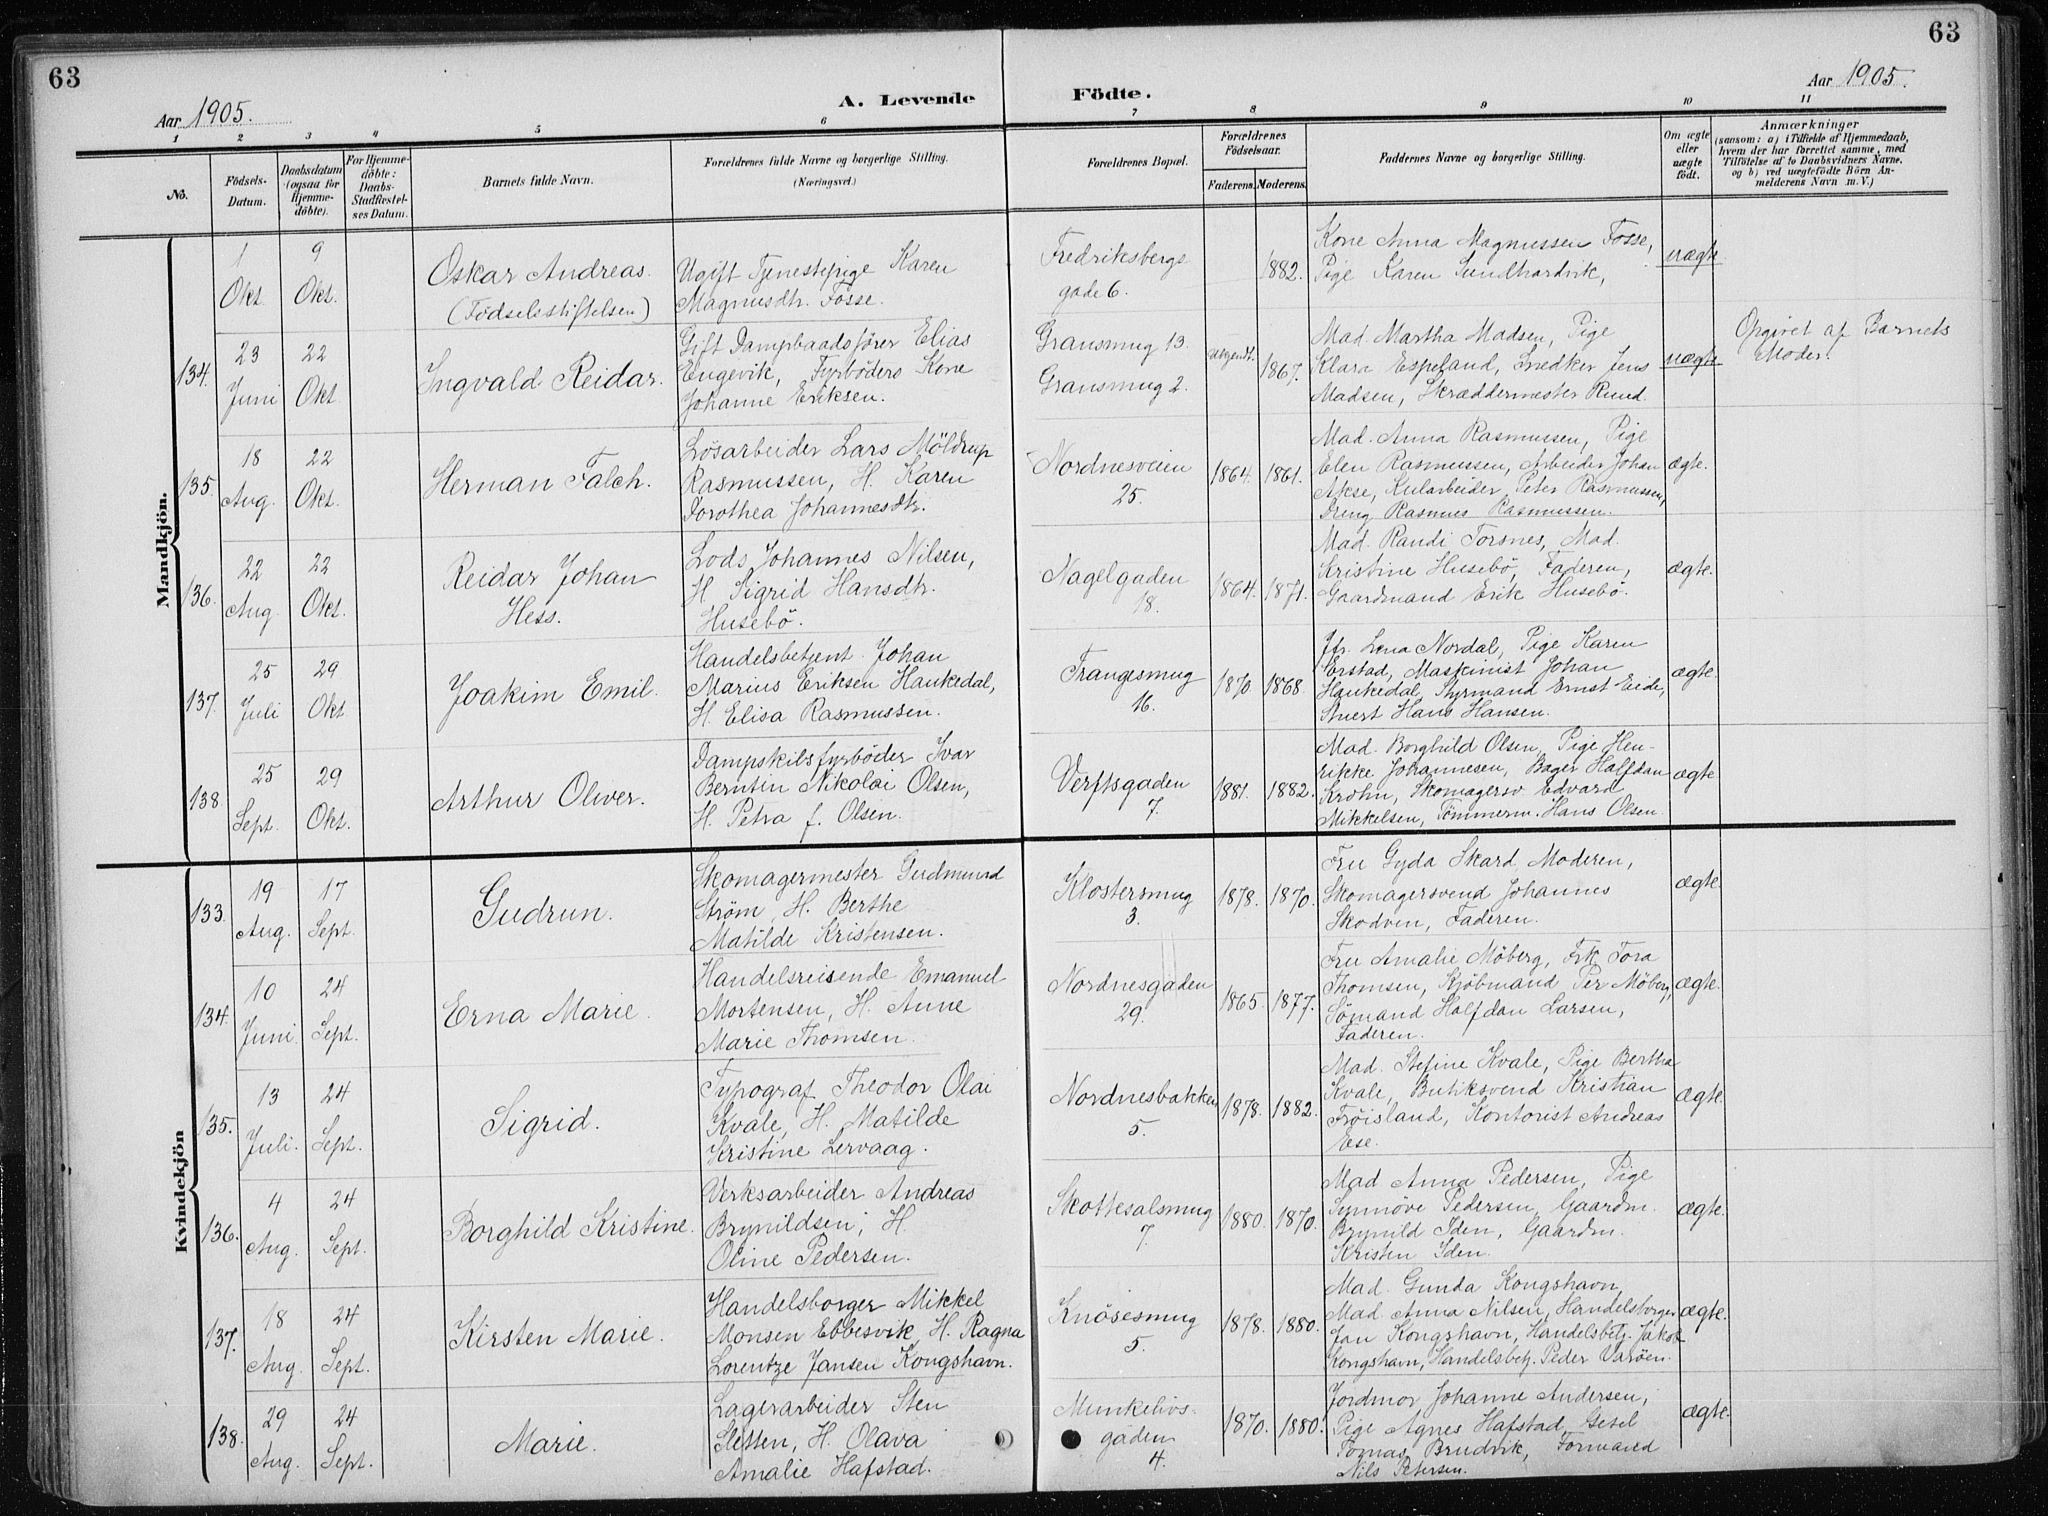 63
63
Aar 1905.
A. Levende
Födte.
Aar 1905.
1 2 3 4 5 6 7 8 9 10 11
No.
Födsels-Datum.
Daabsdatum (ogsaa for Hjemme-döbte).
For Hjemme-döbte: Daabs-Stadfæstel-ses Datum.
Barnets fulde Navn.
Forældrenes fulde Navne og borgerlige Stilling.
(Næringsvei.)
Forældrenes Bopæl.
Forældrenes Födselsaar.
Faderens. Moderens.
Faddernes Navne og borgerlige Stilling.
Om ægte eller uægte födt.
Anmærkninger
(saasom: a) i Tilfælde af Hjemmedaab, hvem der har forrettet samme, med Tilföielse af to Daabsvidners Navne, og b) ved uægtefödte Börn An-melderens Navn m. V.)
Mandkjön.
1 Okt. 9 Okt.
Oskar Andreas.
(Födselsstiftelsen)
Ugift Tjenestepige Karen
Magnusdtr. Fosse.
Fredriksberggs
gade 6.
1882.
Kone Anna Magnussen Fosse,
Pige Karen Sundhardvik,
uægte
134. 23 Juni 22 Okt.
Ingvald Reidar.
Gift Dampbaadsfører Elias
Engevik, Fyrbøders Kone
Johanne Eriksen.
Gransmug 13.
Gransmug 2.
1867.
Mad. Martha Madsen, Pige
Klara Espeland, Snedker Jens
Madsen, Skræddermester Rund.
uægte
Opgivet af Barnets
Moder.
135. 18 Aug. 22 Okt.
Herman Falch.
Løsarbeider Lars Möldrup
Rasmussen, H. Karen
Dorothea Johannesdtr.
Nordnesveien
25.
1864. 1861.
Mad. Anna Rasmussen, Pige
Elen Rasmussen, Arbeider Johan
Akse, Kularbeider Peter Rasmussen,
Dreng Rasmus Rasmussen.
ægte.
136. 22 Aug. 22 Okt.
Reidar Johan
Hess.
Lods Johannes Nilsen,
H. Sigrid Hansdtr.
Husebö.
Nagelgaden
18.
1864. 1871.
Mad. Randi Torsnes, Mad.
Kristine Husebö, Faderen,
Gaardmand Erik Husebö.
ægte.
137. 25 Juli 29 Okt
Joakim Emil.
Handelsbetjent Johan
Marius Eriksen Haukedal,
H. Elisa Rasmussen.
Trangesmug
16.
1870. 1868.
Jfr. Lena Nordal, Pige Karen
Erstad, Maskinist Johan
Haukedal, Styrmand Ernst Eide,
Stuert Hans Hansen.
ægte.
138 25 Sept. 29 Okt.
Arthur Oliver.
Dampskibsfyrbøder Ivar
Berntin Nikolai Olsen,
H. Petra f. Olsen.
Verftsgaden
7.
1881. 1882.
Mad. Borghild Olsen, Pige Hen-
rikke Johannesen, Bager Halfdan
Krohn, Skomagersv Edvard
Mikkelsen, Tømmerm. Hans Olsen
ægte
Kvindekjön
133. 19 Aug. 17 Sept.
Gudrun.
Skomagermester Gudmund
Strøm, H. Berthe
Matilde Kristensen.
Klostersmug
3.
1878. 1870.
Fru Gyda Skard Moderen,
Skomagersvend Johannes
Skodven, Faderen.
ægte.
134. 10 Juni. 24 Sept.
Erna Marie.
Handelsreisende Emanuel
Mortensen, H. Anne
Marie Thomsen.
Nordnesgaden
29.
1865. 1877.
Fru Amalie Möberg, Frk Tora
Thomsen, Kjöbmand Per Möberg,
Sömand Halfdan Larsen,
Faderen.
ægte.
135. 13 Juli. 24 Sept.
Sigrid.
Typograf Theodor Olai
Kvale, H. Matilde
Kristine Lervaag.
Nordnesbakken
5.
1878. 1882.
Mad. Stefine Kvale, Pige Bertha
Kvale, Butiksvend Kristian
Frøisland, Kontorist Andreas
Ese.
ægte.
136. 4 Aug. 24 Sept.
Borghild Kristine.
Verksarbeider Andreas
Brynildsen, H.
Oline Pedersen.
Skottesalsmug
7.
1880. 1870.
Mad Anna Pedersen, Pige
Synnöve Pedersen, Gaardm.
Brynild Iden, Gaardm.
Kristen Iden.
ægte.
137. 18 Aug. 24 Sept.
Kirsten Marie.
Handelsborger Mikkel
Monsen Ebbesvik, H. Ragna
Lorentze Jansen Kongshavn.
Knösesmug
5.
1878. 1880.
Mad. Gunda Kongshavn,
Mad. Anna Nilsen, Handelsborger
Jan Kongshavn, Handelsbetj. Jakob
Kongshavn, Handelsbetj. Peder Varöen.
ægte.
138. 29 Aug. 24 Sept.
Marie.
Lagerarbeider Sten
Sletten, H. Olava
Amalie Hafstad.
Munkelivs-
gaden
4.
1870. 1880.
Jordmor Johanne Andersen,
Pige Agnes Hafstad,
Tomas Brudvik, Formand
Nils Petersen.
ægte.